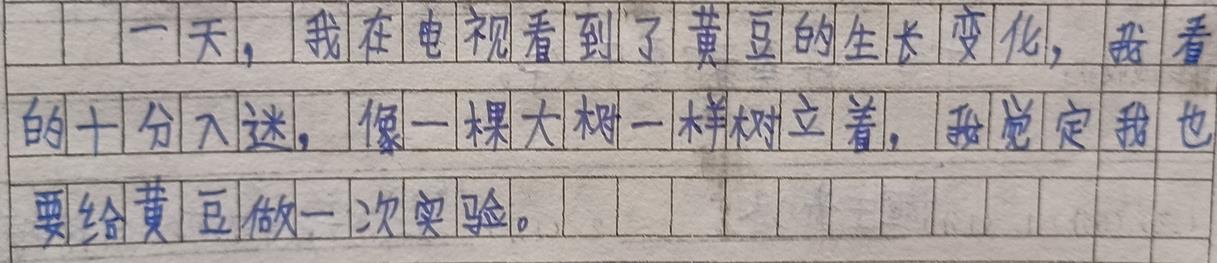 一天，我在电视看到了黄豆的生长变化，我看
的十分入迷，像一棵大树一样树立着，我觉定我也
要给黄豆做一次实验。